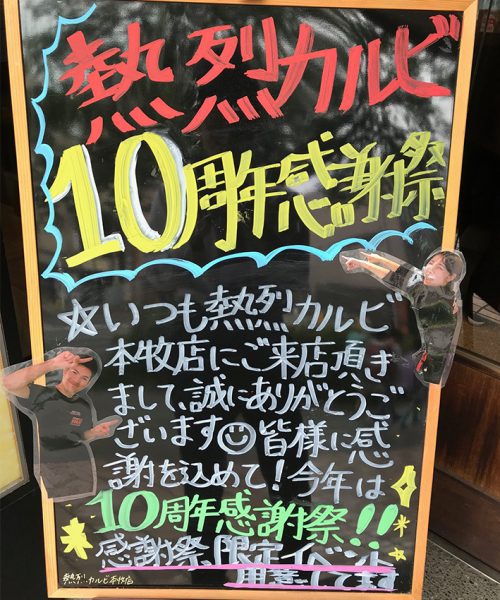 熱烈カルビ
10周年感謝祭
☆いつも熱烈カルビ
本牧店にご来店頂き
まして、誠にありがとうご
ざいます☺皆様に感
謝を込めて!今年は
10周年感謝祭!!
感謝祭、限定イベント
用意してます
熱烈カルビ本牧店